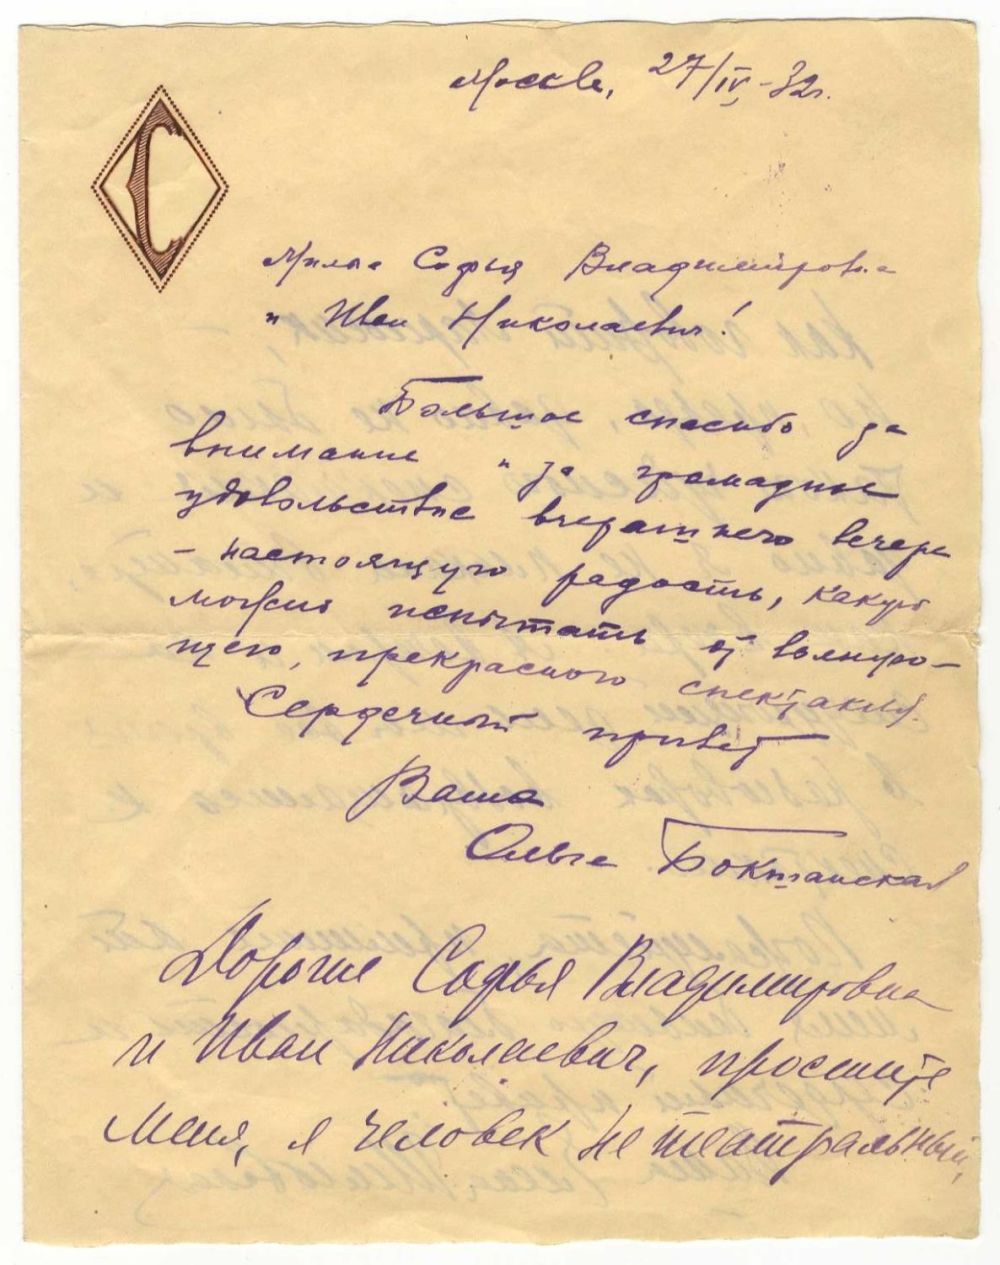 С
Москва, 27/IV-32г.
Милые Софья Владимировна
и Иван Николаевич!
Большое спасибо за
внимание и за громадное
удовольствие вчерашнего вечера
– настоящую радость, какую
можно испытать от волную-
щего, прекрасного спектакля.
Сердечный привет
Ваша
Ольга Бокшанская
Дорогие Софья Владимировна
и Иван Николаевич, простите
меня, я человек не театральный,